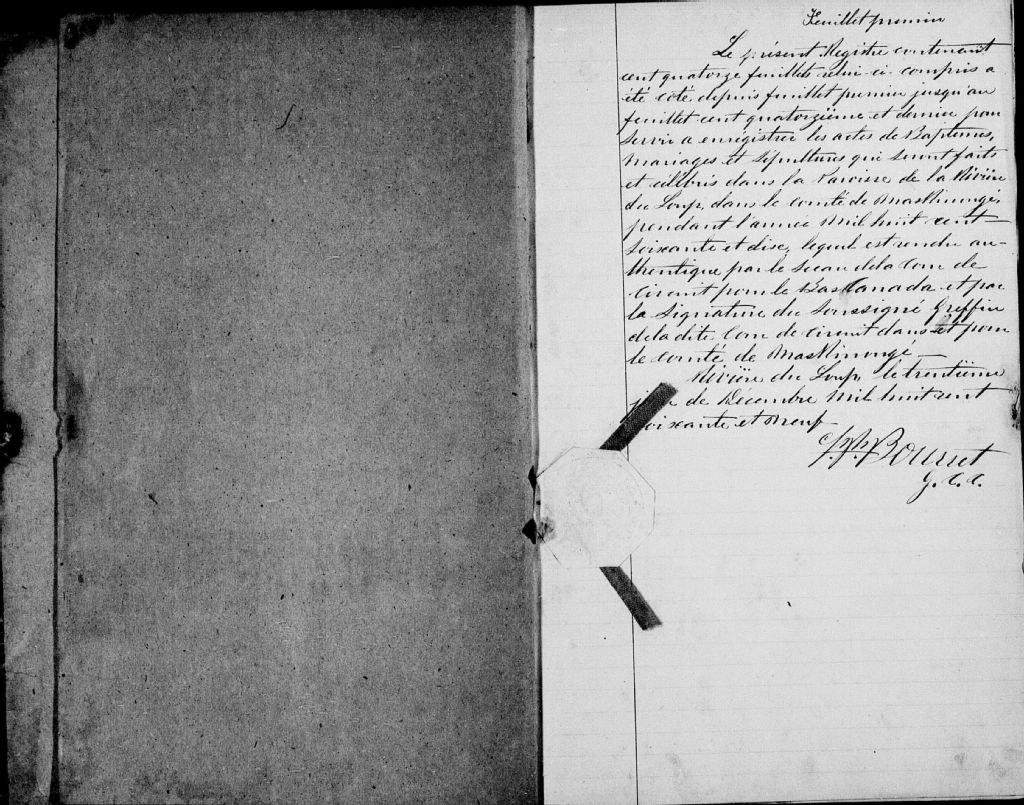 Feuillet premier
Le présent Registre contenant
cent quatorze feuillets celui-ci compris a
été coté depuis feuillet premier jusqu'au
feuillet cent quatorzième et dernier pour
servir a enrégistrer les actes de Baptemes,
Mariages et Sépultures qui seront faits
et célébrés dans la Paroisse de la Rivière
du Loup, dans le comté de Maskinongé,
pendant l'année Mil huit cent
soixante et dix, lequel est rendu au-
thentique par le Sceau de la Cour de
circuit pour le Bas Canada et par
la Signature du Soussigné Greffier
de la dite Cour de circuit dans et pour
le comté de Maskinongé
Rivière du Loup, le trentième
jour de Décembre Mil huit cent
soixante et Neuf
Bourret
G. C. C.